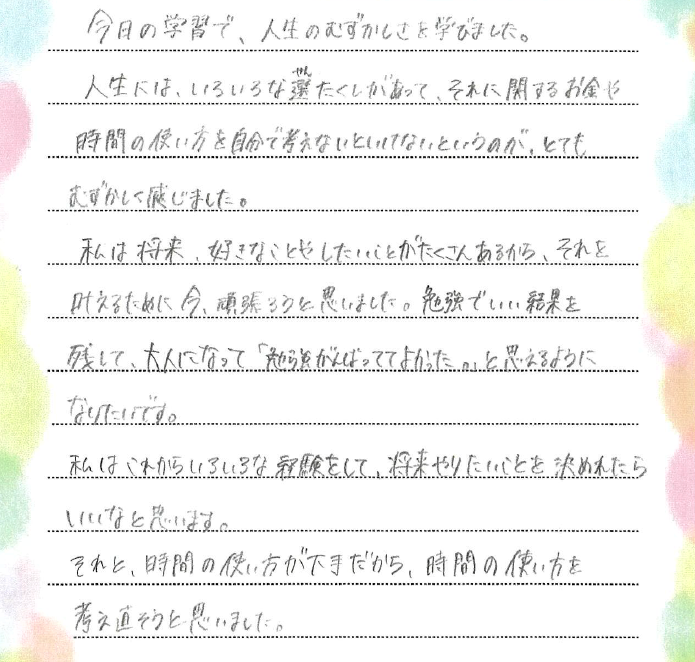 今日の学習で、人生のむずかしさを学びました。
人生には、いろいろな選たくしがあって、それに関するお金や
時間の使い方を自分で考えないといけないというのが、とても
むずかしく感じました。
私は将来、好きなことやしたいことがたくさんあるから、それを
叶えるために今、頑張ろうと思いました。勉強でいい結果を
残して、大人になって「勉強がんばっててよかった。」と思えるように
なりたいです。
私はこれからいろいろな経験をして、将来やりたいことを決めれたら
いいなと思います。
それと、時間の使い方が下手だから、時間の使い方を
考え直そうと思いました。